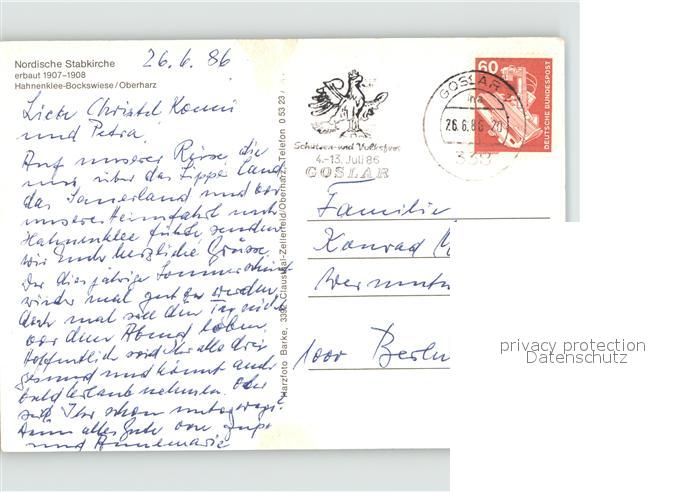 Nordische Stabkirche
erbaut 1907-1908
Hahnenklee-Bockswiese/Oberharz
26.6.86
Liebe Christel Konni
und Petra!
Auf unserer Reise, die
uns über das Lippe Land
das Sauerland und vor
unserer Heimfahrt nach
Hahnenklee führte senden
wir Euch herzliche Grüsse.
Der diesjährige Sommer scheint
wieder mal gut zu werden,
doch mal soll den Tag nicht
vor dem Abend loben.
Hoffentlich seid Ihr alle drei
gesund und könnt auch
bald Urlaub nehmen. Oder
seid Ihr schon unterwegs?
Dann alles Gute von
und Annemarie
Harzfoto Barke, 3392 Clausthal-Zellerfeld/Oberharz, Telefon 0 53 23 /
Schützen- und Volksfest
4.-13. Juli 86
GOSLAR
GOSLAR
26.6.86-20
60
DEUTSCHE BUNDESPOST
Familie
Konrad
Wermut
1000 Berlin
privacy protection
Datenschutz